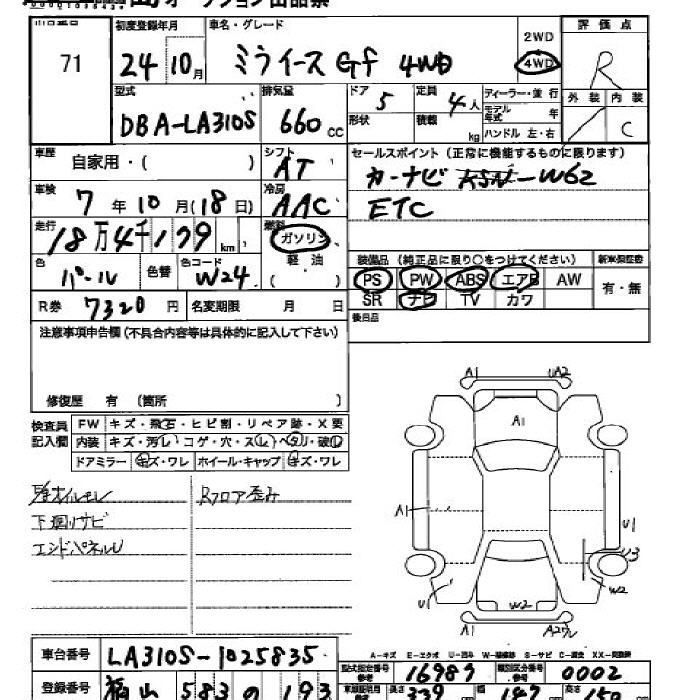 オークション出品票
71
初度登録年月 車名・グレード 2WD 評価点
24 10月 ミライース Gf 4WD 4WD R
型式 排気量 ドア 定員 ディーラー・並行 外装 内装
DBA-LA310S 660 cc 5 4人 モデル年式 年 / C
形状 積載 kg ハンドル 左・右
車歴 自家用・( ) シフト AT セールスポイント (正常に機能するものに限ります)
車検 7年10月(18日) 冷房 AAC カーナビ -W62
ETC
走行 18万4千179km 燃料 ガソリン
軽油
( )
色 パール 色替 色コード W24 装備品 (純正品に限り○をつけてください) 新車保証書
PS PW ABS エアB AW 有・無
SR ナビ TV カワ
R券 7320円 名変期限 月 日 後日品
注意事項申告欄 (不具合内容等は具体的に記入して下さい)
修復歴 有 (箇所 )
検査員記入欄 FW キズ・飛石・ヒビ割・リペア跡・X要
内装 キズ・汚レ・コゲ・穴・スレ・ベタリ・破レ
ドアミラー キズ・ワレ ホイール・キャップ キズ・ワレ
オイルモレ Rフロア歪み
下廻りサビ
エンドパネルU
A1 UA2
A1
A1 U1
U3
U1 W2 W2
A1 A2ワレ
A-キズ E-エクボ U-凹み W-補修跡 S-サビ C-腐食 XX-交換済
車台番号 LA310S-1025835 型式指定番号 参考 16989 類別区分番号 参考 0002
登録番号 福山 583 の 193 長さ 339 幅 147 高さ 150